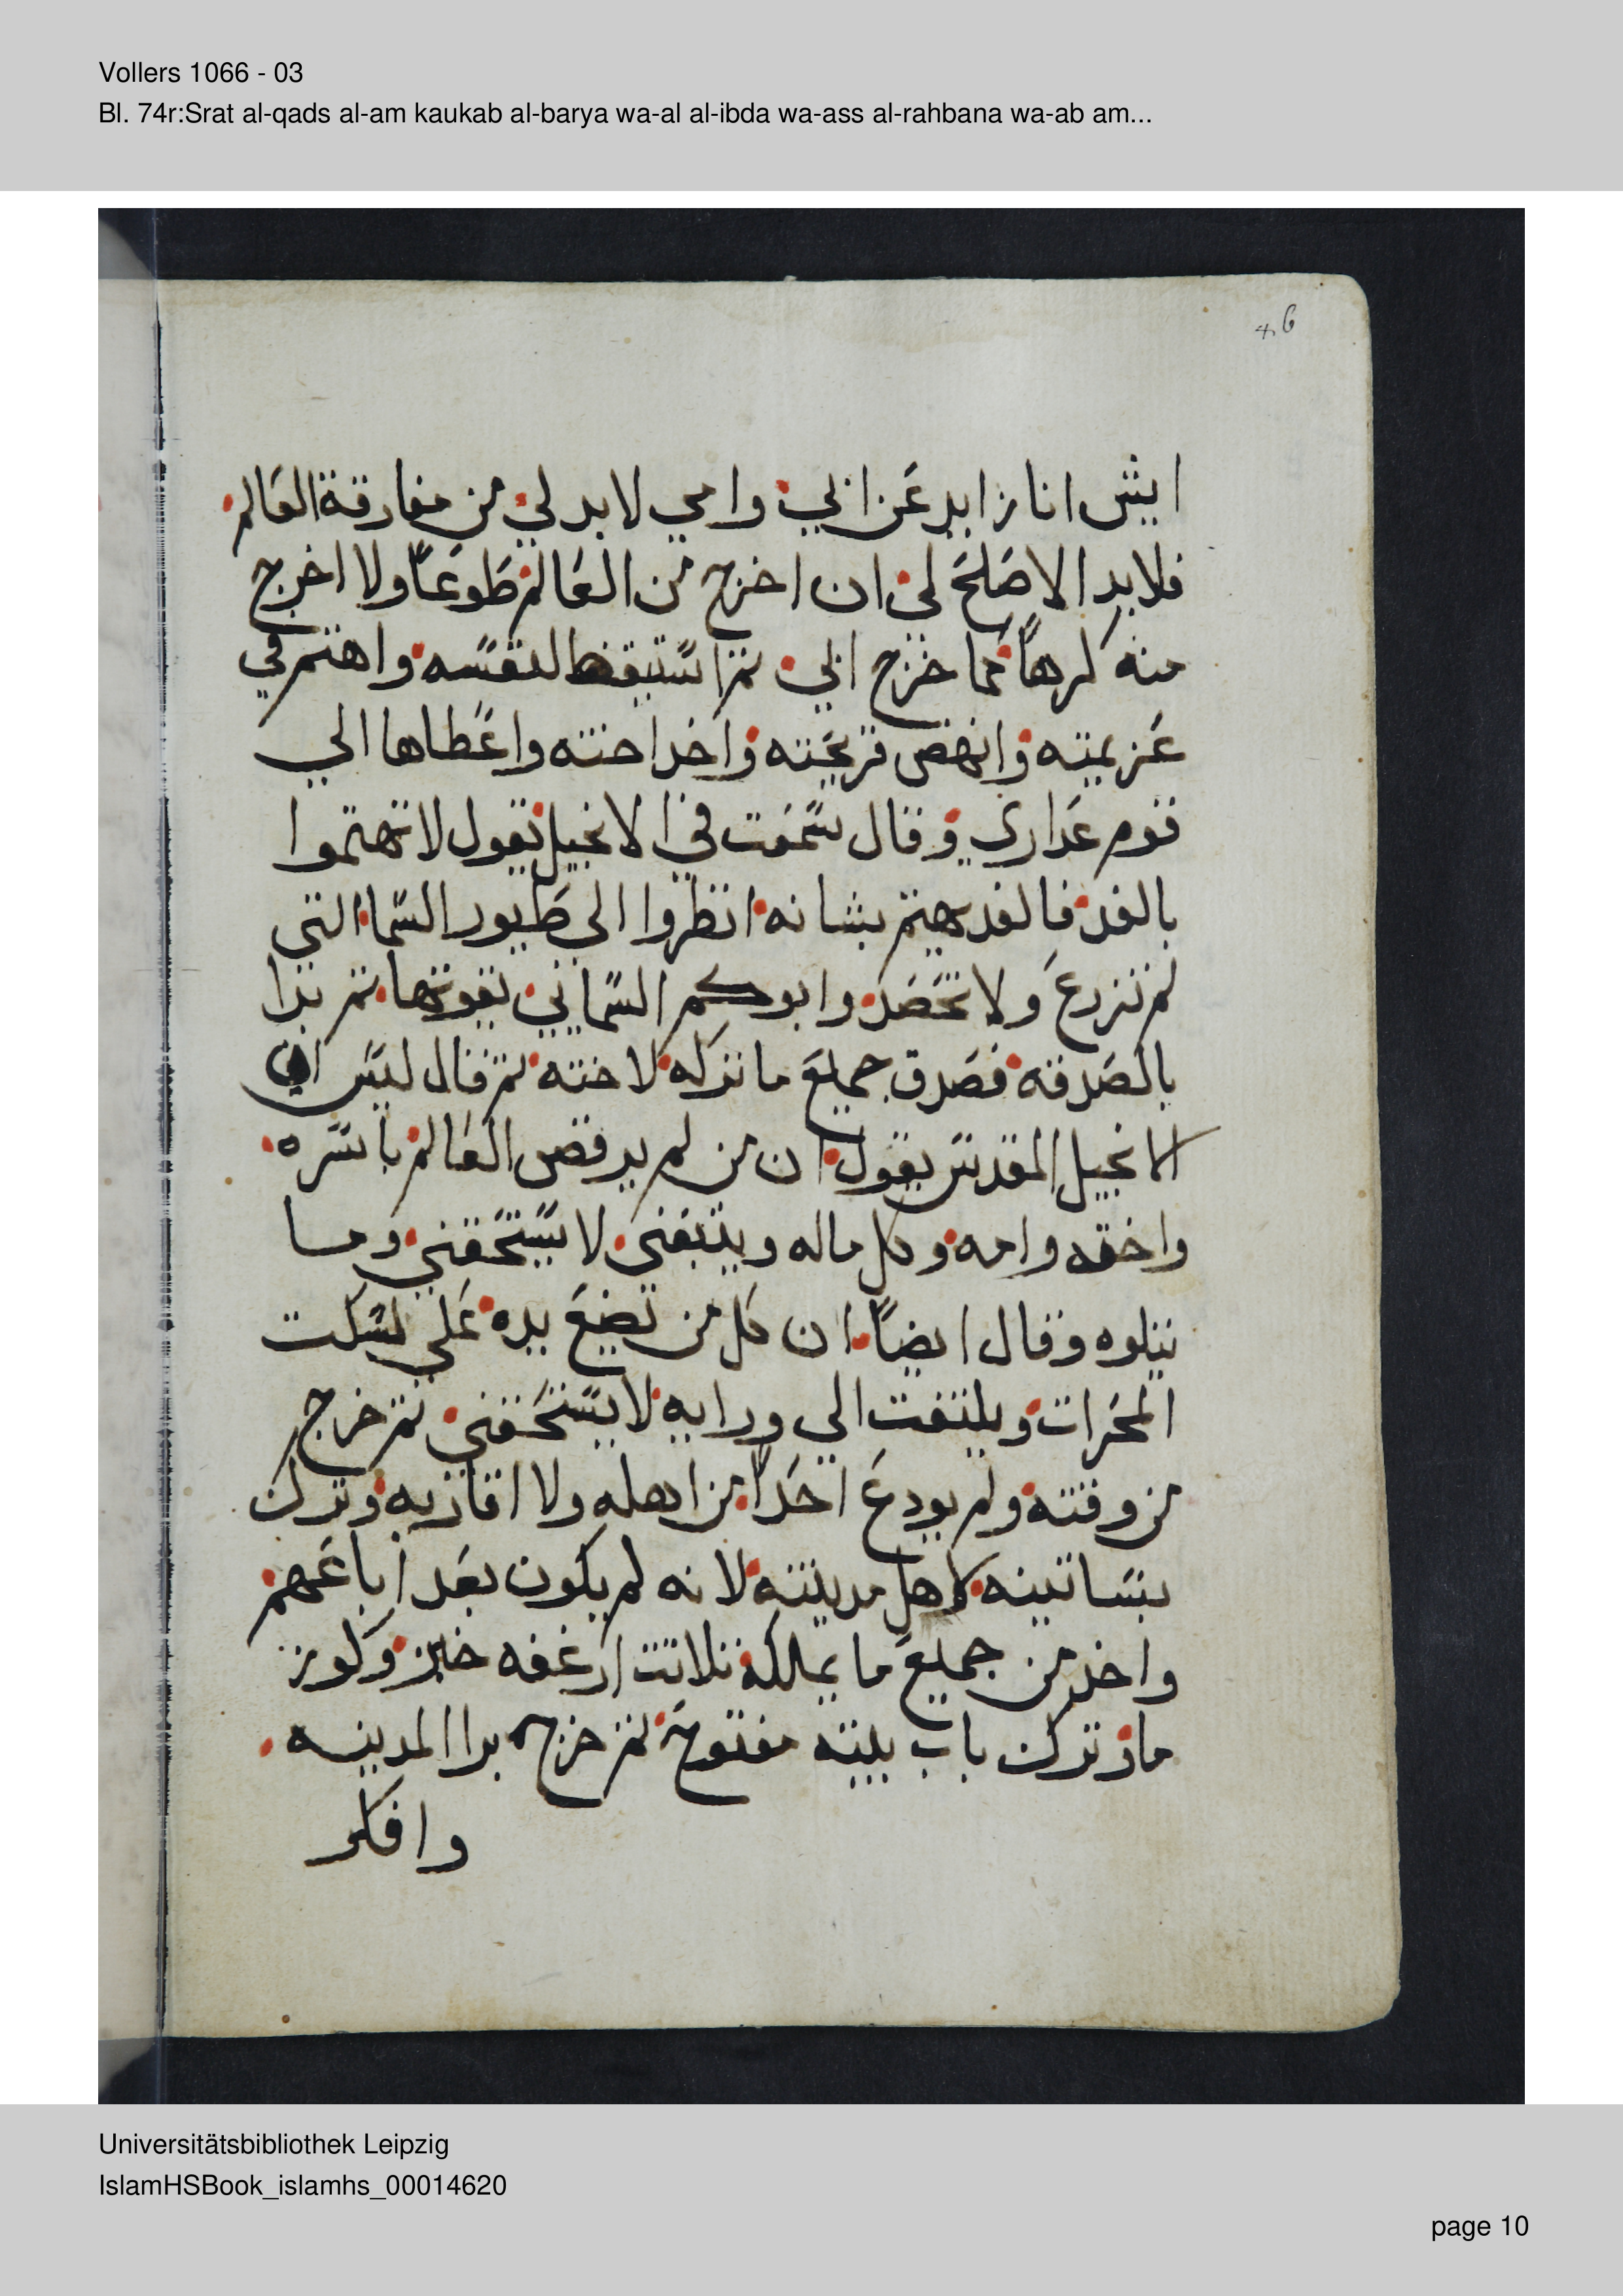 Vollers 1066 - 03
Bl. 74r:Srat al-qads al-am kaukab al-barya wa-al al-ibda wa-ass al-rahbana wa-ab am...
ايش انا زايد عن ابي وامي لابد لي من مفارقة العالم
فلابد الاصلح لي ان اخرج من العالم طوعاً ولا اخرج
منه كرهاً كما خرج ابي ثم استيقظ لنفسه واهتم في
عزيمته وانهض قريحته واخد اخته واعطاها الي
قوم عداري وقال سمعت في الانجيل تقول لا تهتموا
بالغد فالغد يهتم بشانه انظروا الي طيور السما التي
لم تزرع ولا تحصد وابوكم السماني يقوتها ثم بدا
بالصدقه فصدق جميع ما تركه لاخته ثم قال ليس
الانجيل المقدس يقول ان من لم يرفض العالم باسره
واخته وامه وكل ماله ويتبعني لا يستحقني وما
يتلوه وقال ايضاً ان كل من تضع يده علي سكت
المحرات ويلتفت الي ورايه لا يستحقني ثم خرج
من وقته ولم يودع احداً من اهله ولا اقاربه وترك
بساتينه لاهل مدينته لانه لم يكون بعد اباعهم
واخد من جميع ما يملكه تلاتت ارغفه خبز وكوز
ما وترك باب بيته مفتوح ثم خرج برا المدينه
وافكر
Universitätsbibliothek Leipzig
IslamHSBook_islamhs_00014620
page 10